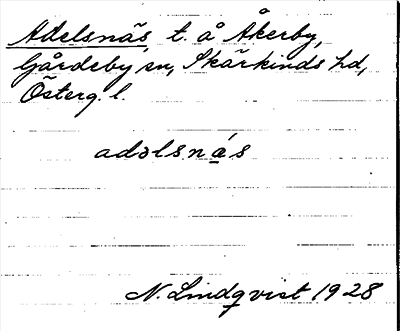 Adelsnäs t. å Åkerby,
Gårdeby sn, Skärkinds hd,
Österg. l.
adəlsná̱s
N. Lindqvist 1928